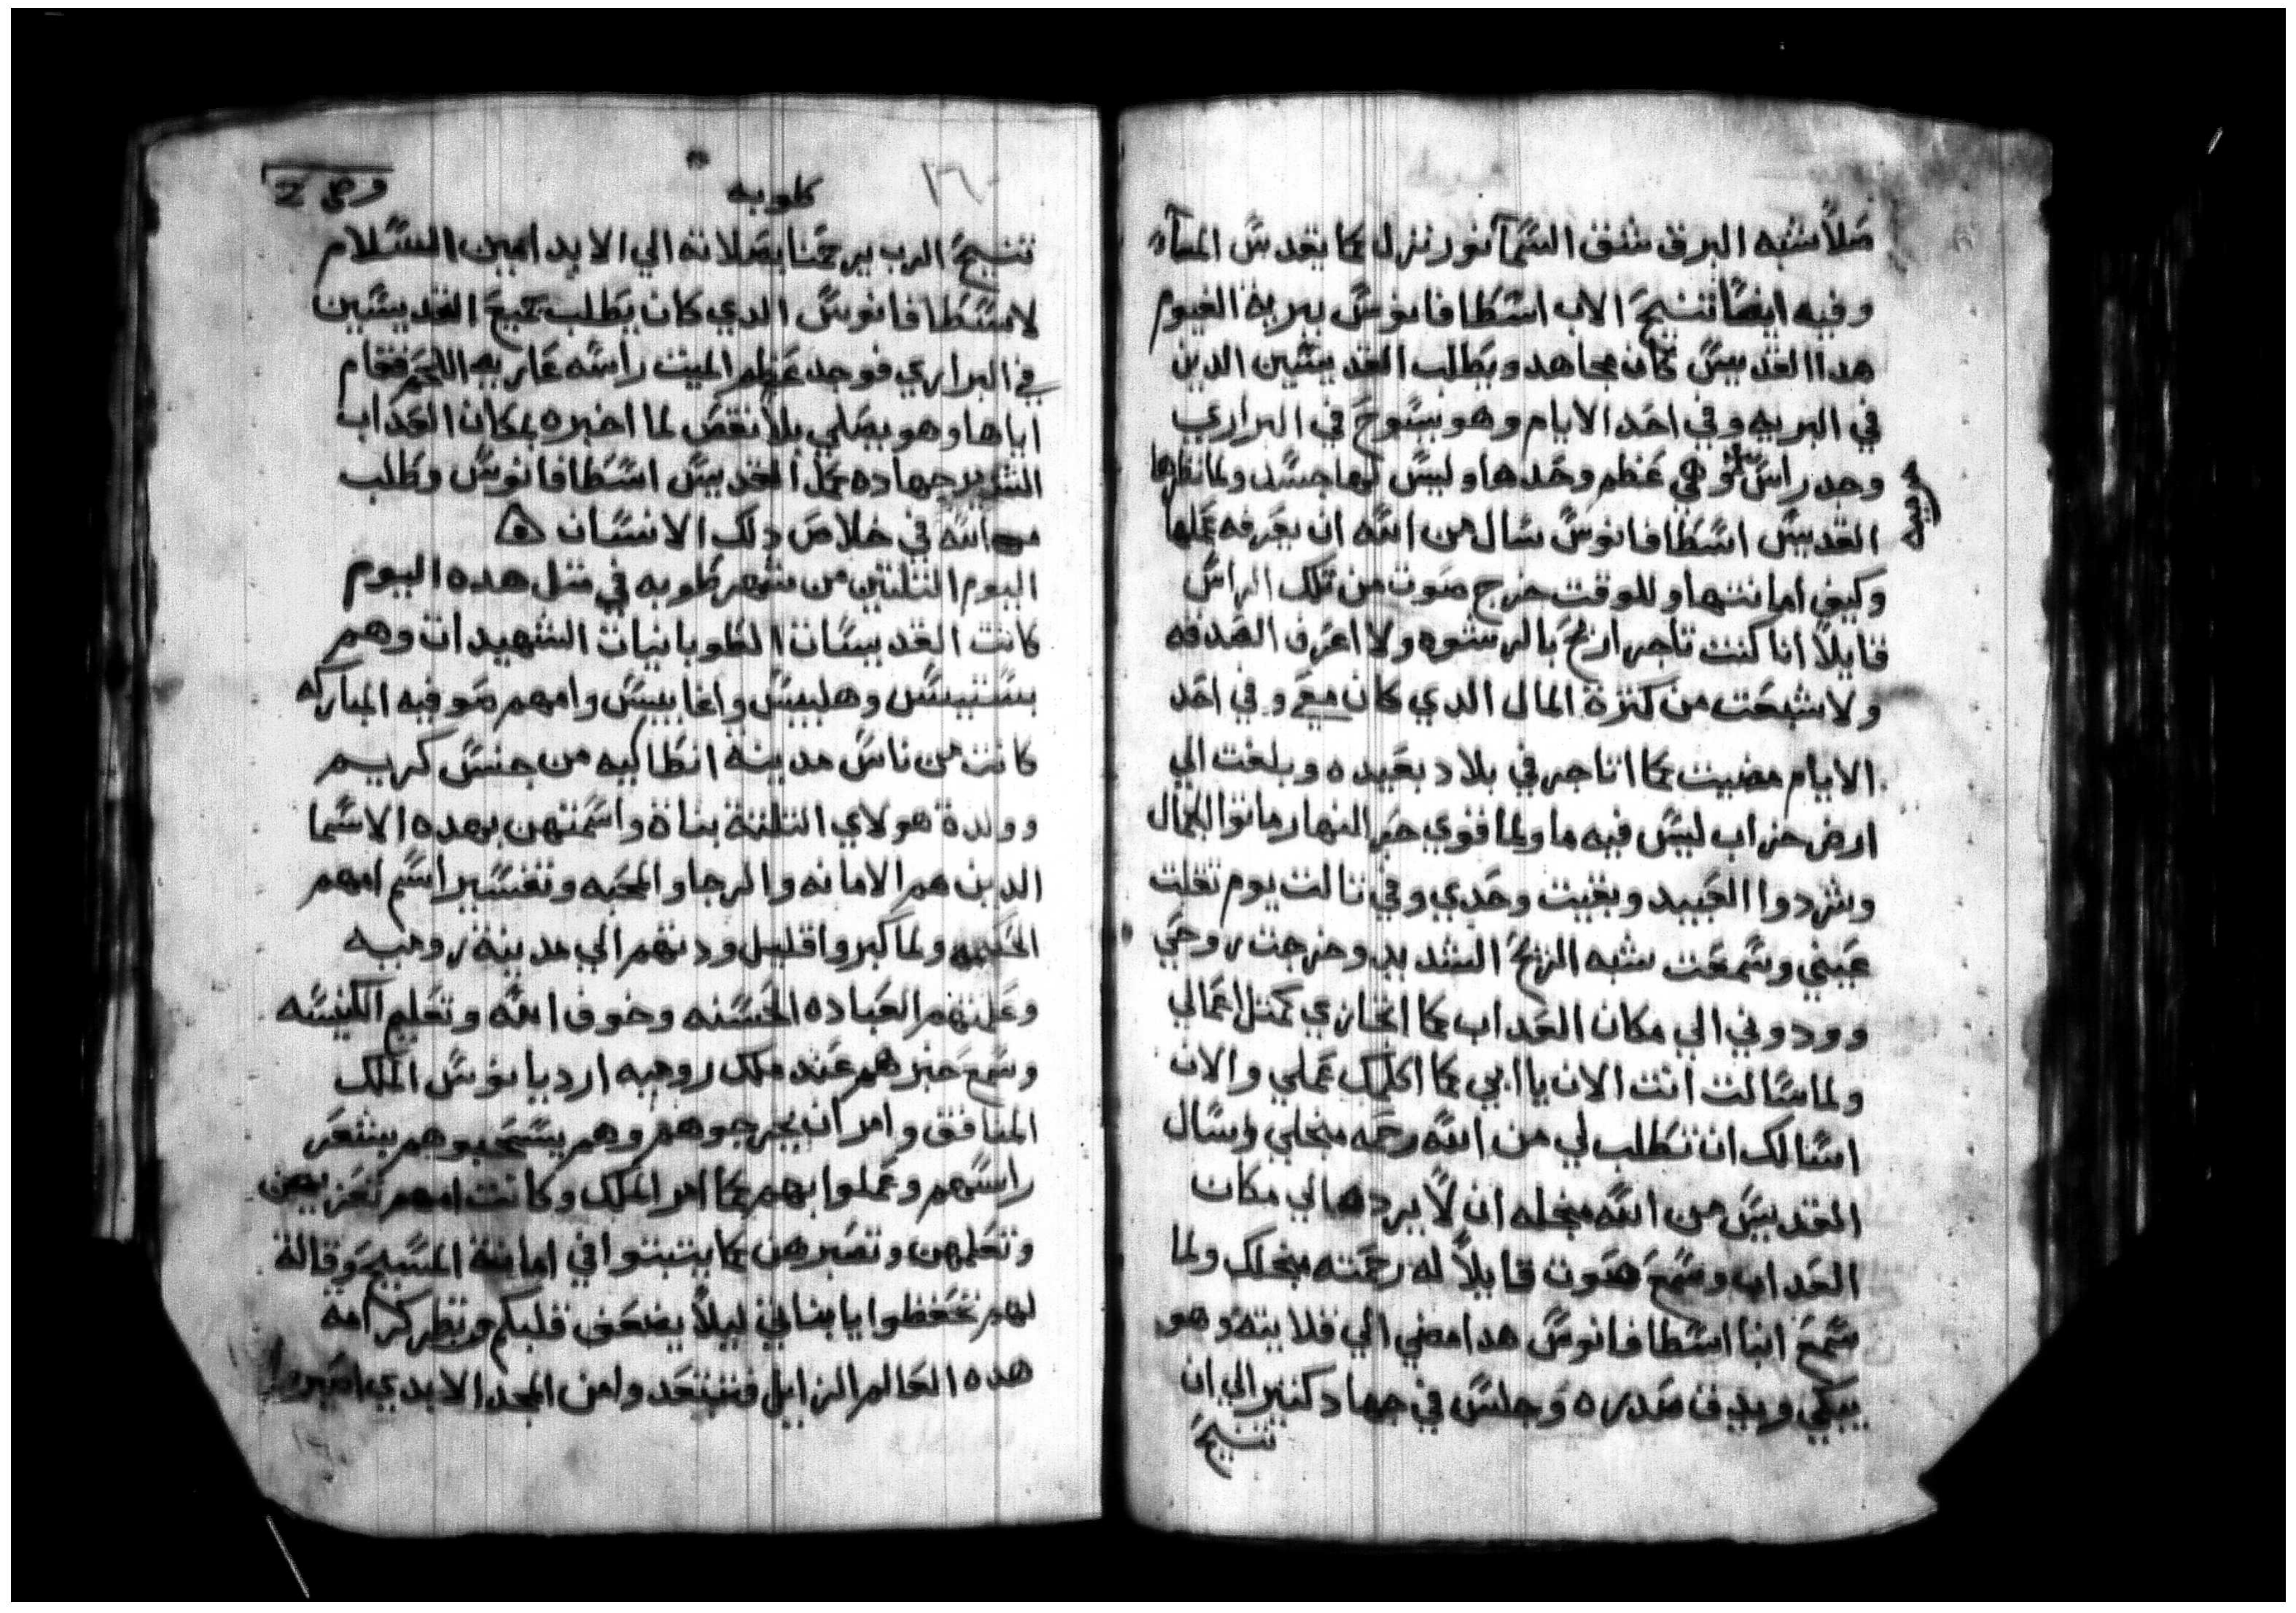 صلاً شبه البرق شقق السمآ نور نزل كما يقدس المآء
وفيه ايضاً تنيح الاب اسطافانوس ببرية الفيوم
هدا القديس كان مجاهد ويطلب القديسين الدين
في البريه وفي احد الايام وهو يسوح في البراري
وجد راس وهي عظم وحدها وليس لها جسد ولما نظرها
القديس اسطافانوس سال من الله ان يعرفه عملها
وكيف امانتها وللوقت خرج صوت من تلك الراس
قايلاً انا كنت تاجر اربح بالرشوه ولا اعرف الصدقه
ولا شبعت من كترة المال الدي كان معي وفي احد
الايام مضيت كما اتاجر في بلاد بعيده وبلغت الي
ارض خراب ليس فيه ما ولما قوي حر النهار ماتوا الجمال
وشردوا العبيد وبقيت وحدي وفي تالت يوم تقلت
عيني وسمعت شبه الريح الشديد وخرجت روحي
وودوني الي مكان العداب كما اتجازي كمتل اعمالي
ولما سالت انت الان يا ابي كما اكلمك عملي والان
اسالك ان تطلب لي من الله رحمه منجلي وسال
القديس من الله منجله ان لاً يردها الي مكان
العداب وسمع صوت قايلاً له رحمته منجلك ولما
سمع انبا اسطافانوس هدا مضي الي قلايته وهو
يبكي ويدق صدره وجلس في جهاد كتير الي ان
تنيح
كلوبه
١٦٠
تنيح الرب يرحمنا بصلاته الي الابد امين السلام
لاسطافانوس الدي كان يطلب جميع القديسين
في البراري فوجد عظم الميت راسه عاريه اللحم فقام
اياها وهو يصلي بلا نقص لما اخبره بمكان العداب
الشرير جهاده عمل القديس اسطافانوس وطلب
من الله في خلاص دلك الانسان
اليوم التلتين من شهر طوبه في متل هده اليوم
كانت القديسات الطوبانيات الشهيدات وهم
بستيس وهلبيس واغابيس وامهم صوفيه المباركه
كانت من ناس مدينة انطاكيه من جنس كريم
وولدة هولاي التلتة بناة واسمتهن بهده الاسما
الدين هم الامانه والرجا والمحبه وتفسير اسم امهم
الحكمه ولما كبروا قليل ودتهم الي مدينة روميه
وعلمتهم العباده الحسنه وخوف الله وتعليم الكنيسه
وسمع خبرهم عند ملك روميه ارديانوس الملك
المنافق وامر ان يخرجوهم وهم يسحبوهم بشعر
راسهم وعملوا بهم كما امر الملك وكانت امهم تعزيهن
وتعلمهن وتصبرهن كما يتبتوا في امانة المسيح وقالة
لهم تحفظوا يا بناتي ليلاً يضعف قلبكم وينظر كرامة
هده العالم الزايل فتبتعدوا من المجد الابدي اصبروا